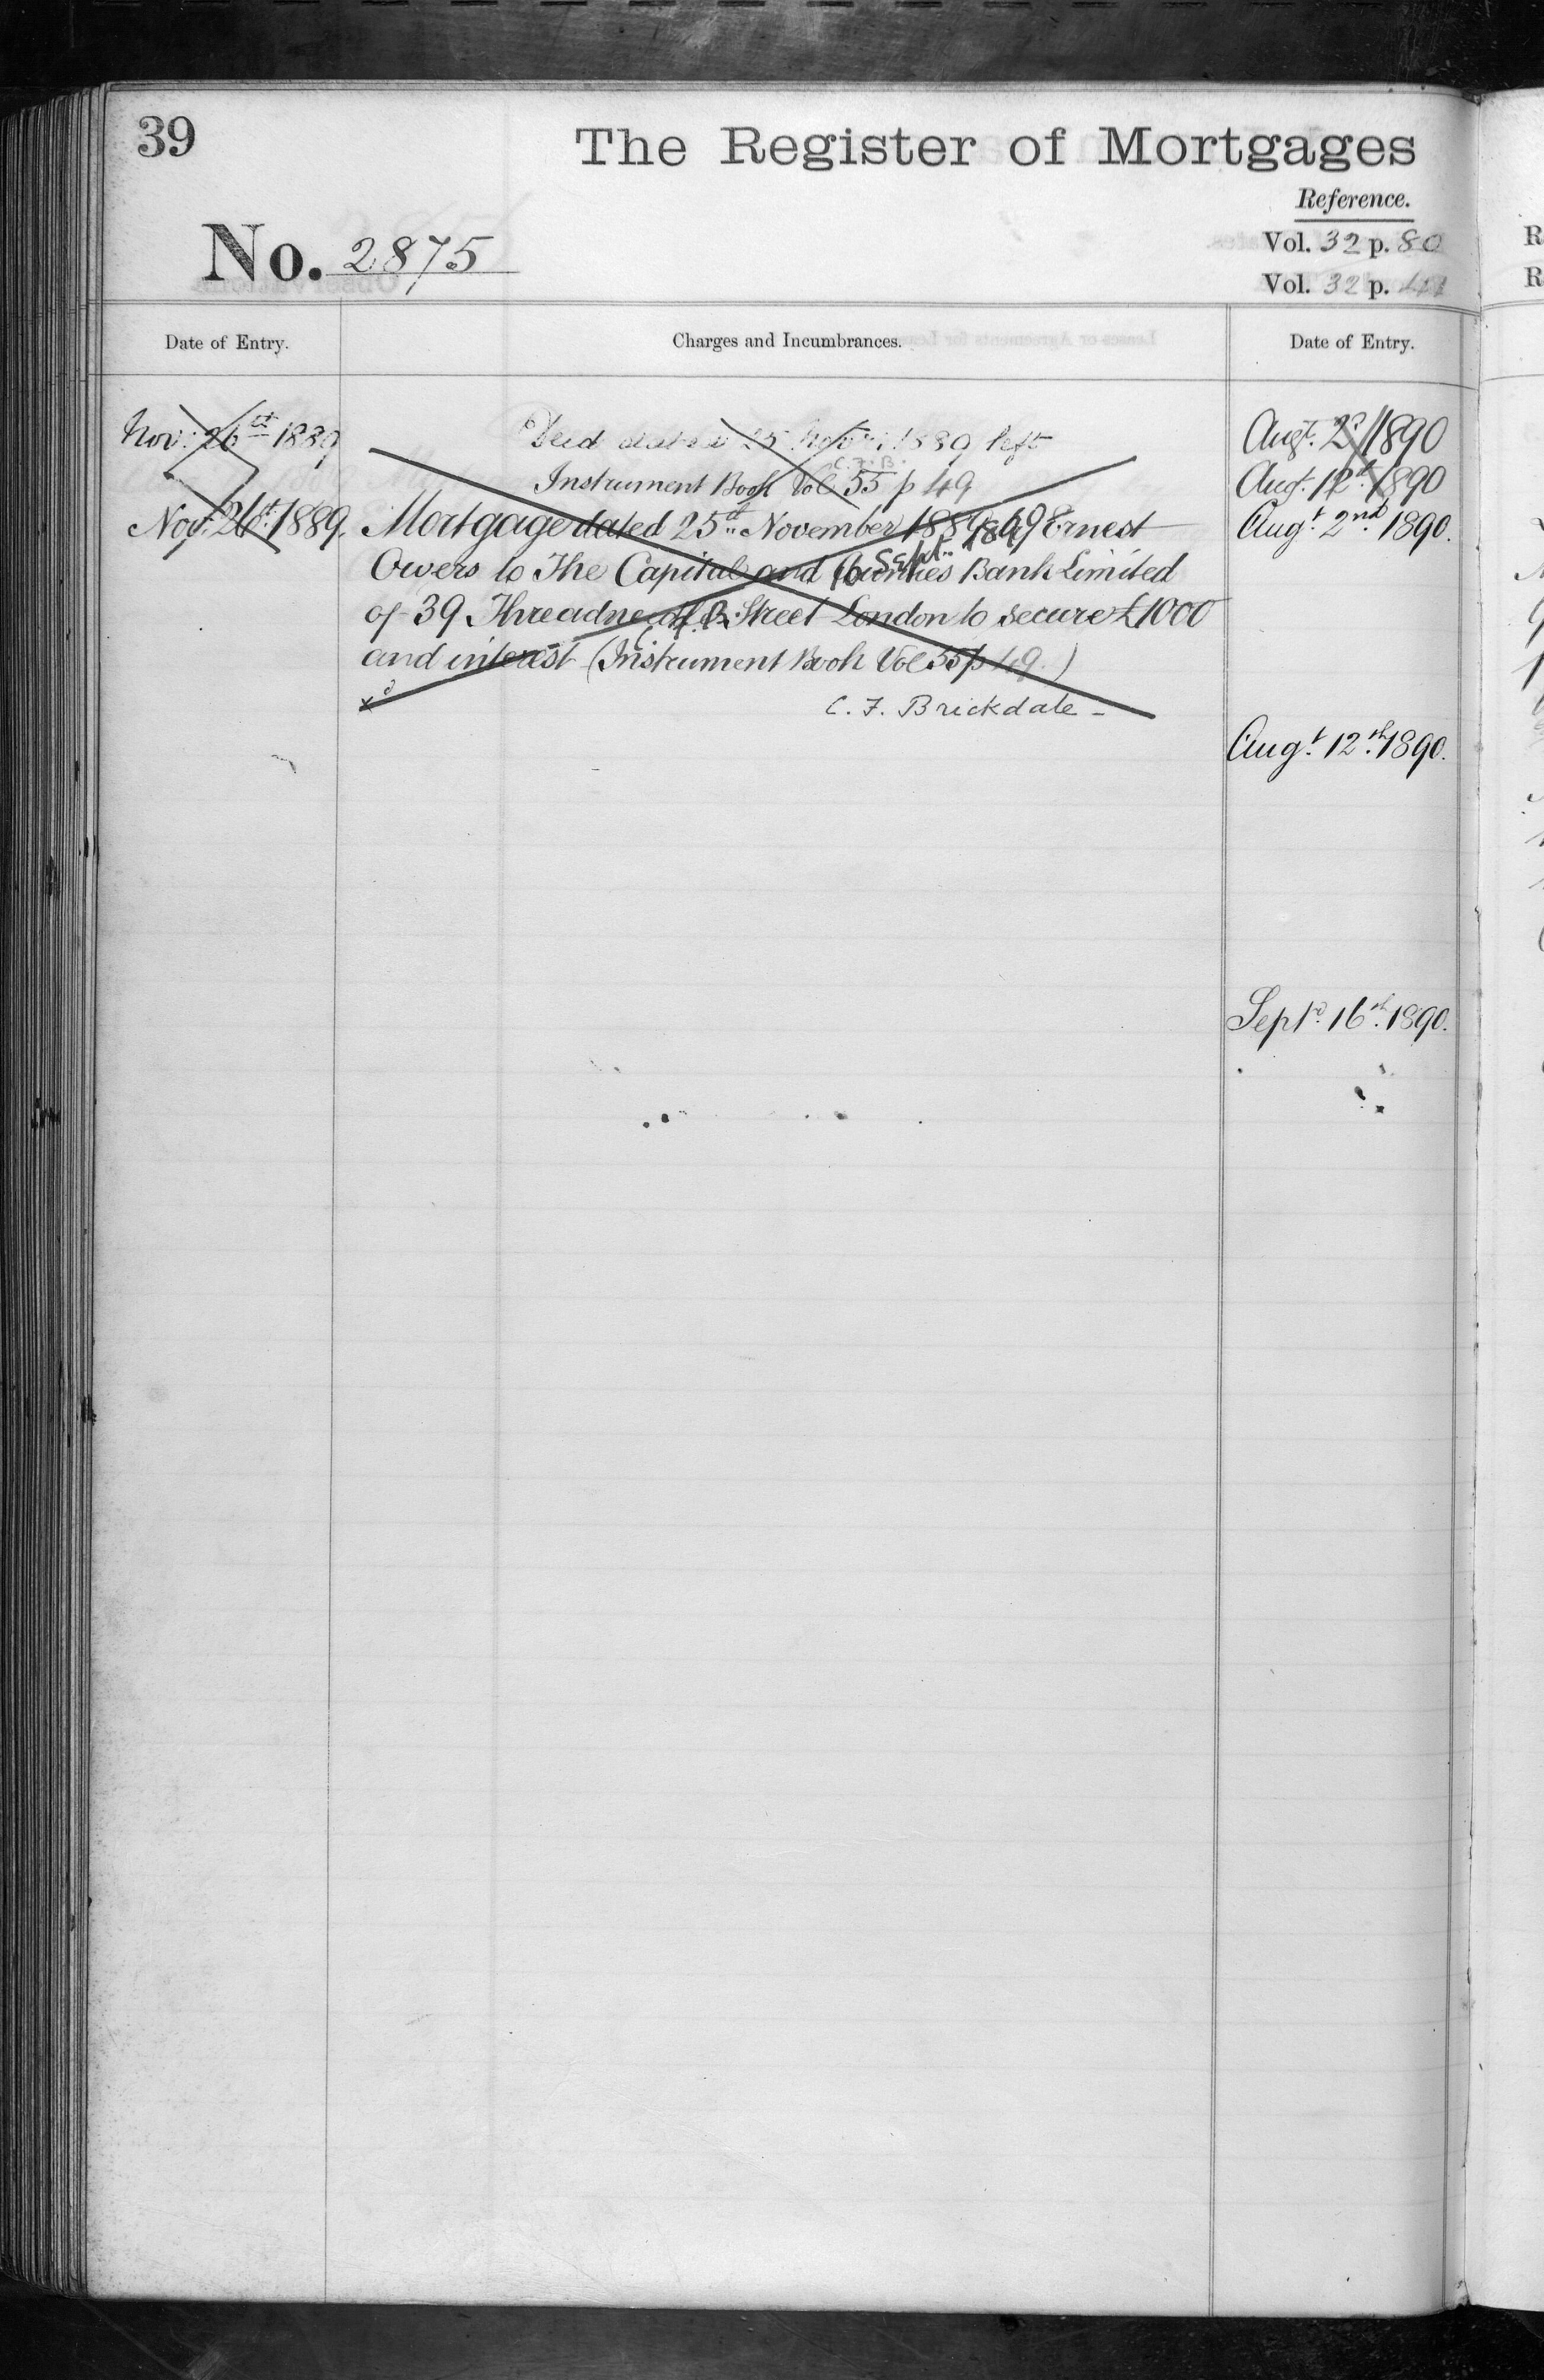 39
The Register of Mortgages
Reference.
No. 2875
Vol. 32 p. 80
Vol. 32 p. 41
Date of Entry.
Charges and Incumbrances.
Date of Entry.
Nov: 26th 1889
Deed dated 25 Novr. 1889 left
C.F.B.
Instrument Book Vol 55 p 49
Novr. 26th 1889.
Mortgage dated 25th November 1889 Ernest
Owers to The Capital and Counties Bank Limited
of 39 Threadneedle Street London to secure £1000
and interest (Instrument Book Vol 55 p 49.)
16 Sept. 1890
C.F.B.
C. F. Brickdale -
Augt. 2d 1890
Augt. 12th 1890
Augt. 2nd 1890.
Augt. 12th 1890.
Septr. 16th 1890.